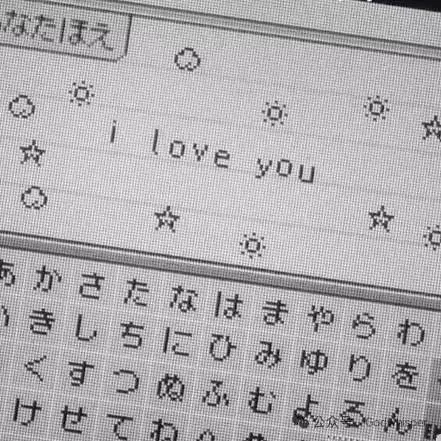 なたほえ
i love you
あ か さ た な は ま や ら わ
き し ち に ひ み ゆ り を
く す つ ぬ ふ む よ る ん
け せ て ね
公众号